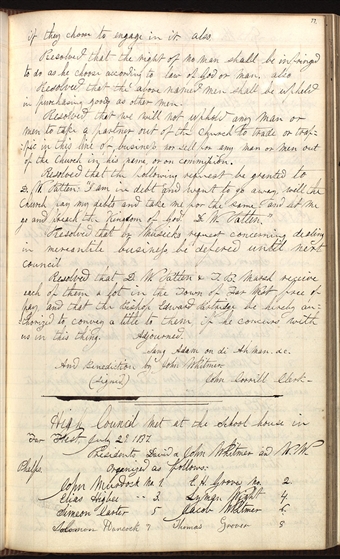 if they chose to engage in it also.
Resolved that the right of no man shall be infringed
to do as he choose according to law of God or man. also
Resolved that the above named men shall be upheld
in purchasing goods as other men.
Resolved that we will not uphold any man or
men to take a partner out of the Church to trade or traf-
fic in this line or business or sell for any man or men out
of the Church in his name or on commission.
Resolved that the following request be granted to
D. W. Patten "I am in debt and want to go away, will the
Church pay my debts and take me for the same and let me
go and preach the Kingdom of God D. W. Patten"
Resolved that br Musick's request concerning dealing
in mercantile business be defered until next
council
Resolved that D. W. Patten & T. B. Marsh receive
each of them a lot in the Town of Far West free of
pay and that the Bishop Edward Partridge be hereby au-
thorized to convey a title to them, if he concurs with
us in this thing. Adjourned.
Sang Adam on di Ahman. &c.
And Benediction by John Whitmer
(Signed)
John Corrill Clerk-
High Council met at the School house in
Far West July 29 1837
Presidents David & John Whitmer and W. W.
Phelps
Organized as follows:
John Murdock no. 1 G. H. Grove no. 2
Elias Higbee " 3. Lyman Wight 4
Simeon Carter 5 Jacob Whitmer 6
Solomon Hancock 7 Thomas Grover 8